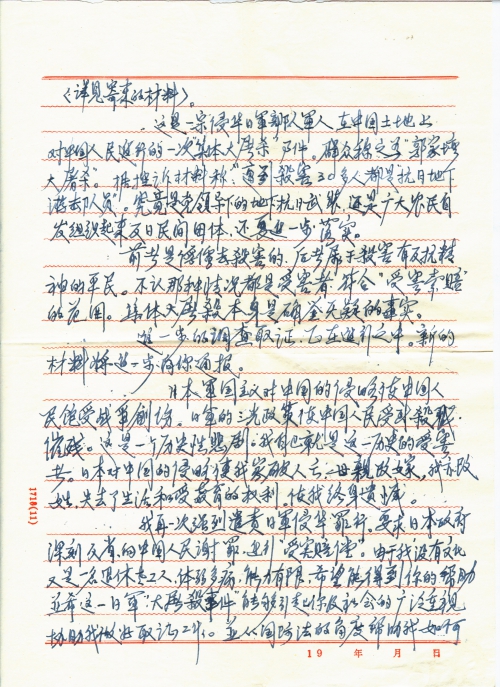 （详见寄来的材料）。
这是一宗侵华日军部队军人在中国土地上
对中国人民进行的一次"集体大屠杀"事件。群众称之为"郭家塘
大屠杀"。据控诉材料称"遇到杀害30多人都是抗日地下
游击队员。究竟是党领导下的地下抗日武装，还是广大农民自
发组织起来反日民间团体，还要进一步落实。
前者是俘虏去杀害的，后者属于杀害有反抗精
神的平民。不认那种情况都是受害者，符合"受害索赔"
的范围。集体大屠杀本身是确凿无疑的事实。
进一步的调查取证，正在进行之中。新的
材料将进一步向你通报。
日本军国主义对中国的侵略使中国人
民饱受战争创伤。日军的三光政策使中国人民受到杀戮、
催残。这是一个历史性悲剧。我自己就是这一历史的受害
者。日本对中国的侵略使我家破人亡，母亲改嫁，我亦改
姓，失去了生活和受教育的权利。使我终身遗憾。
我再一次强烈谴责日军侵华罪行。要求日本政府
深刻反省，向中国人民谢罪，进行"受害赔偿"。由于我没有文化
又是一名退休老工人，体弱多病，能力有限，希望能得到你的帮助
并希这一日军"大屠杀事件"能够引起你及社会的广泛重视
协助我做好取证工作。並从国际法的角度帮助我如何
1718(11)
19 年 月 日